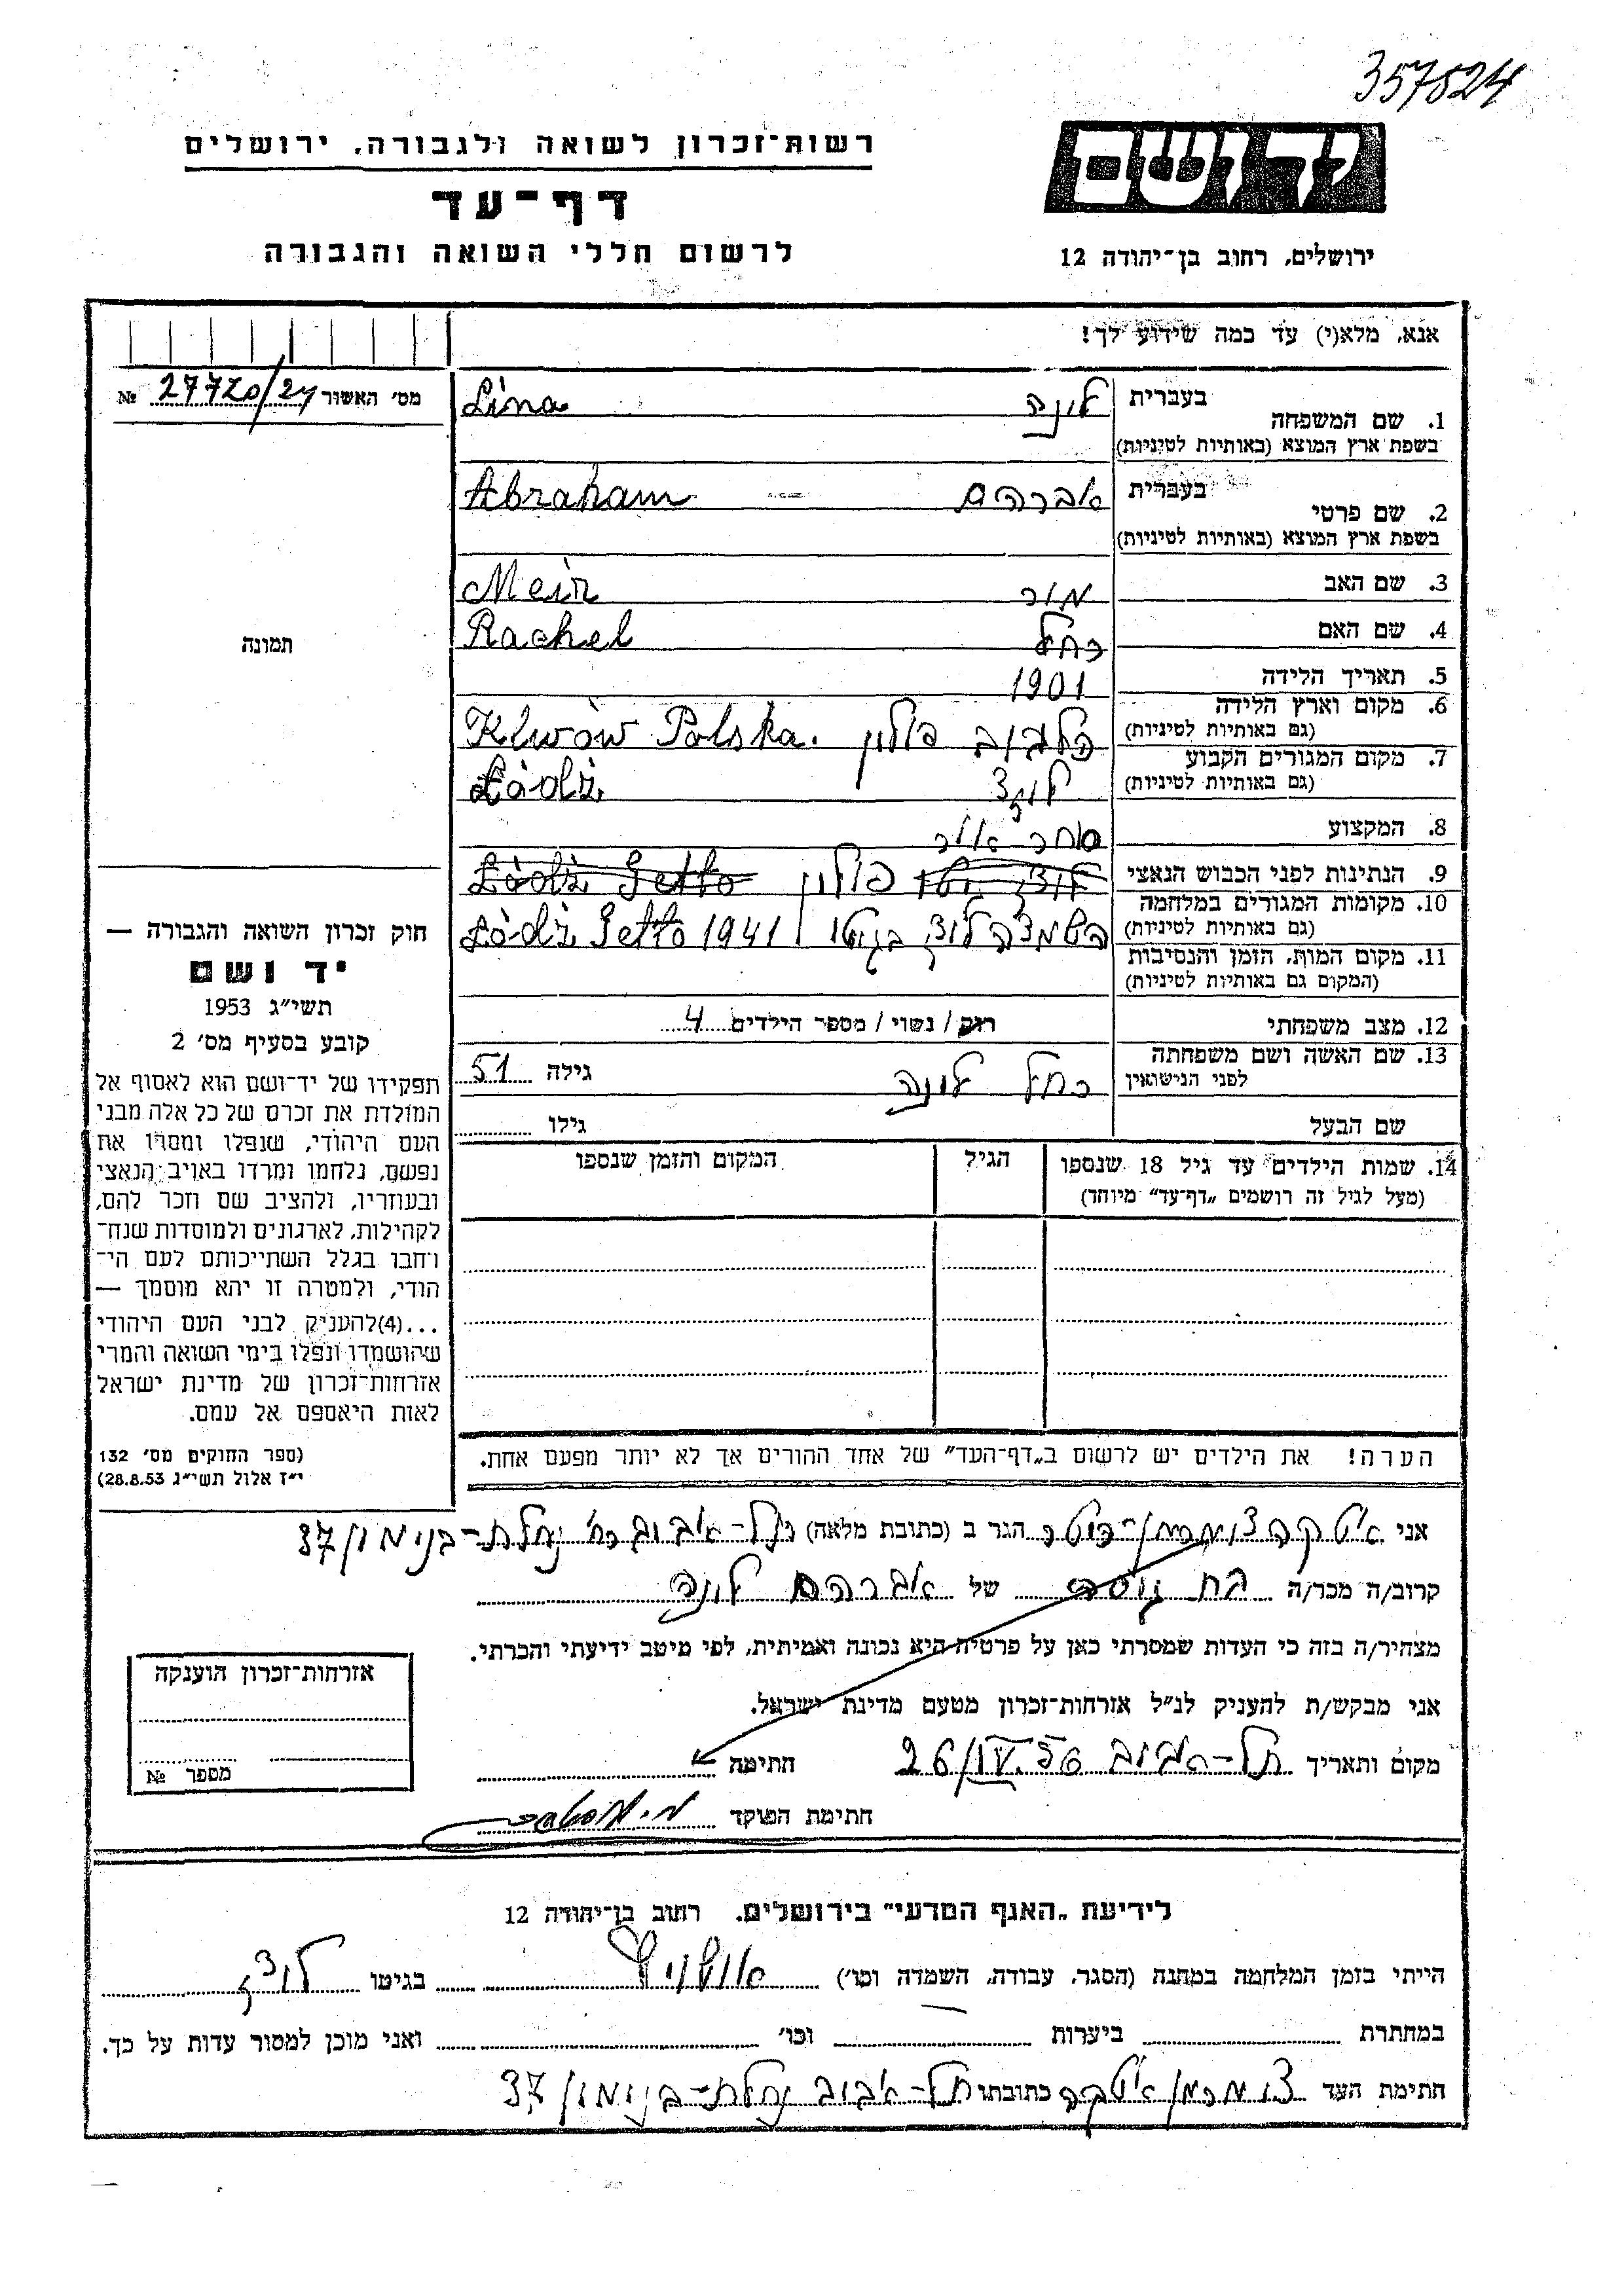 357824
יד ושם
רשות־זכרון לשואה ולגבורה, ירושלים
דף־עד
לרשום חללי השואה והגבורה
ירושלים, רחוב בן־יהודה 12
אנא, מלא(י) עד כמה שידוע לך!
מס׳ האשור 27720/24 №
1. שם המשפחה
בעברית לינה Lina
בשפת ארץ המוצא (באותיות לטיניות)
2. שם פרטי
בעברית אברהם Abraham
בשפת ארץ המוצא (באותיות לטיניות)
3. שם האב מיר Meir
4. שם האם רחל Rachel
5. תאריך הלידה 1901
6. מקום וארץ הלידה פולין Klwów Polska.
(גם באותיות לטיניות)
7. מקום המגורים הקבוע לודז Łódź
(גם באותיות לטיניות)
8. המקצוע סוחר
9. הנתינות לפני הכבוש הנאצי פולין Łódź Getto
10. מקומות המגורים במלחמה
(גם באותיות לטיניות) לודז בגיטו Łódź Getto 1941
11. מקום המות, הזמן והנסיבות
(המקום גם באותיות לטיניות)
12. מצב משפחתי רווק / נשוי / מספר הילדים 4
13. שם האשה ושם משפחתה
לפני הנישואין רחל לינה גילה 51
שם הבעל גילו
14. שמות הילדים עד גיל 18 שנספו הגיל המקום והזמן שנספו
(מעל לגיל זה רושמים „דף־עד״ מיוחד)
הערה! את הילדים יש לרשום ב„דף־העד״ של אחד ההורים אך לא יותר מפעם אחת.
תמונה
חוק זכרון השואה והגבורה —
יד ושם
תשי״ג 1953
קובע בסעיף מס׳ 2
תפקידו של יד־ושם הוא לאסוף אל
המולדת את זכרם של כל אלה מבני
העם היהודי, שנפלו ומסרו את
נפשם, נלחמו ומרדו באויב הנאצי
ובעוזריו, ולהציב שם וזכר להם,
לקהילות, לארגונים ולמוסדות שנח־
רחבו בגלל השתייכותם לעם הי־
הודי, ולמטרה זו יהא מוסמך —
...(4)להעניק לבני העם היהודי
שהושמדו ונפלו בימי השואה והמרי
אזרחות־זכרון של מדינת ישראל
לאות היאספם אל עמם.
(ספר החוקים מס׳ 132
י״ז אלול תשי״ג 28.8.53)
אני איטקה צוקרמן הגר ב (כתובת מלאה) תל־אביב רח׳ נחלת־בנימין 37
קרוב/ה מכר/ה בת גיסה של אברהם לינה
מצהיר/ה בזה כי העדות שמסרתי כאן על פרטיה היא נכונה ואמיתית, לפי מיטב ידיעתי והכרתי.
אני מבקש/ת להעניק לנ״ל אזרחות־זכרון מטעם מדינת ישראל.
מקום ותאריך תל־אביב 26/IV.56 חתימה
חתימת הפוקד
אזרחות־זכרון הוענקה
מספר №
לידיעת „האגף המדעי״ בירושלים, רחוב בן־יהודה 12
הייתי בזמן המלחמה במחנה (הסגר, עבודה, השמדה וכו׳) אושויץ בגיטו לודז
במחתרת ביערות וכו׳ ואני מוכן למסור עדות על כך.
חתימת העד צוקרמן איטקה כתובתו תל־אביב נחלת־בנימין 37